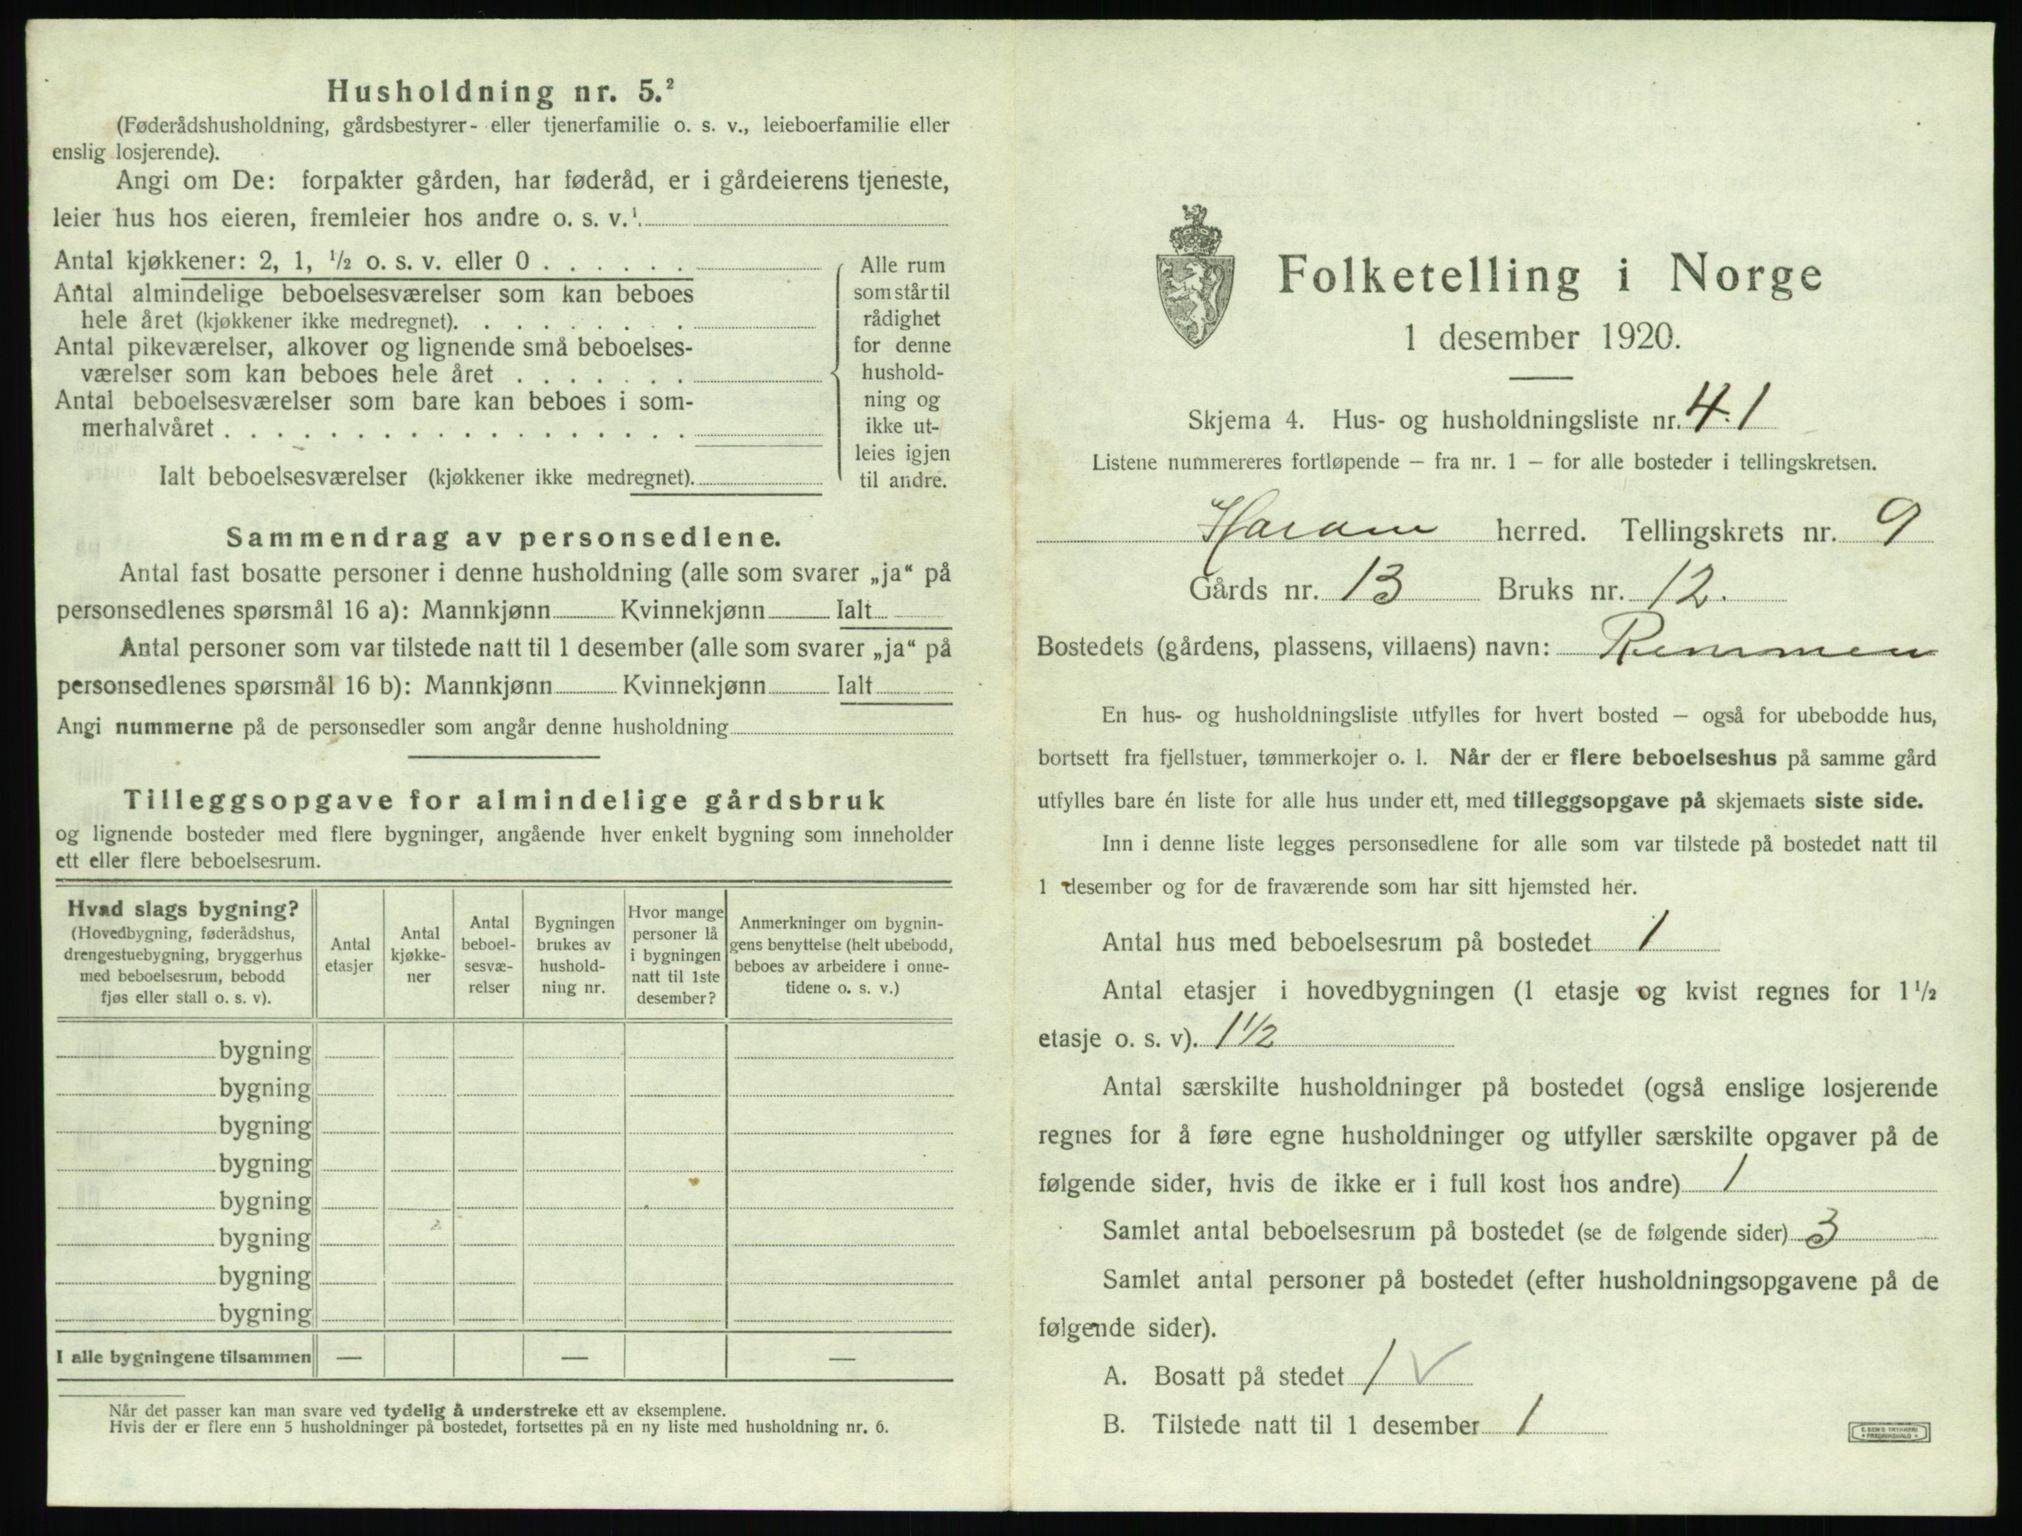 Husholdning nr. 5.²
(Føderådshusholdning, gårdsbestyrer- eller tjenerfamilie o. s. v., leieboerfamilie eller
enslig losjerende).
Angi om De: forpakter gården, har føderåd, er i gårdeierens tjeneste,
leier hus hos eieren, fremleier hos andre o. s. v.¹
Antal kjøkkener: 2, 1, ½ o. s. v. eller 0 . . . . . .
Antal almindelige beboelsesværelser som kan beboes
hele året (kjøkkener ikke medregnet). . . . . . . . .
Antal pikeværelser, alkover og lignende små beboelses-
værelser som kan beboes hele året . . . . . . .
Antal beboelsesværelser som bare kan beboes i som-
merhalvåret . . . . . . . . . . . . . . . . . .
Ialt beboelsesværelser (kjøkkener ikke medregnet).
Alle rum
som står til
rådighet
for denne
hushold-
ning og
ikke ut-
leies igjen
til andre.
Sammendrag av personsedlene.
Antal fast bosatte personer i denne husholdning (alle som svarer „ja“ på
personsedlenes spørsmål 16 a): Mannkjønn Kvinnekjønn Ialt
Antal personer som var tilstede natt til 1 desember (alle som svarer „ja“ på
personsedlenes spørsmål 16 b): Mannkjønn Kvinnekjønn Ialt
Angi nummerne på de personsedler som angår denne husholdning
Tilleggsopgave for almindelige gårdsbruk
og lignende bosteder med flere bygninger, angående hver enkelt bygning som inneholder
ett eller flere beboelsesrum.
Hvad slags bygning?
(Hovedbygning, føderådshus,
drengestuebygning, bryggerhus
med beboelsesrum, bebodd
fjøs eller stall o. s. v).
Antal
etasjer
Antal
kjøkke-
ner
Antal
beboel-
sesvæ-
relser
Bygningen
brukes av
hushold-
ning nr.
Hvor mange
personer lå
i bygningen
natt til 1ste
desember?
Anmerkninger om bygnin-
gens benyttelse (helt ubebodd,
beboes av arbeidere i onne-
tidene o. s. v.)
bygning
bygning
bygning
bygning
bygning
bygning
bygning
bygning
I alle bygningene tilsammen — — —
Når det passer kan man svare ved tydelig å understreke ett av eksemplene.
Hvis der er flere enn 5 husholdninger på bostedet, fortsettes på en ny liste med husholdning nr. 6.
Folketelling i Norge
1 desember 1920.
Skjema 4. Hus- og husholdningsliste nr. 41
Listene nummereres fortløpende — fra nr. 1 — for alle bosteder i tellingskretsen.
Haram herred. Tellingskrets nr. 9
Gårds nr. 13 Bruks nr. 12.
Bostedets (gårdens, plassens, villaens) navn: Remmen
En hus- og husholdningsliste utfylles for hvert bosted — også for ubebodde hus,
bortsett fra fjellstuer, tømmerkojer o. l. Når der er flere beboelseshus på samme gård
utfylles bare én liste for alle hus under ett, med tilleggsopgave på skjemaets siste side.
Inn i denne liste legges personsedlene for alle som var tilstede på bostedet natt til
1 desember og for de fraværende som har sitt hjemsted her.
Antal hus med beboelsesrum på bostedet 1
Antal etasjer i hovedbygningen (1 etasje og kvist regnes for 1½
etasje o. s. v). 1½
Antal særskilte husholdninger på bostedet (også enslige losjerende
regnes for å føre egne husholdninger og utfyller særskilte opgaver på de
følgende sider, hvis de ikke er i full kost hos andre) 1
Samlet antal beboelsesrum på bostedet (se de følgende sider) 3
Samlet antal personer på bostedet (efter husholdningsopgavene på de
følgende sider).
A. Bosatt på stedet 1 v
B. Tilstede natt til 1 desember 1